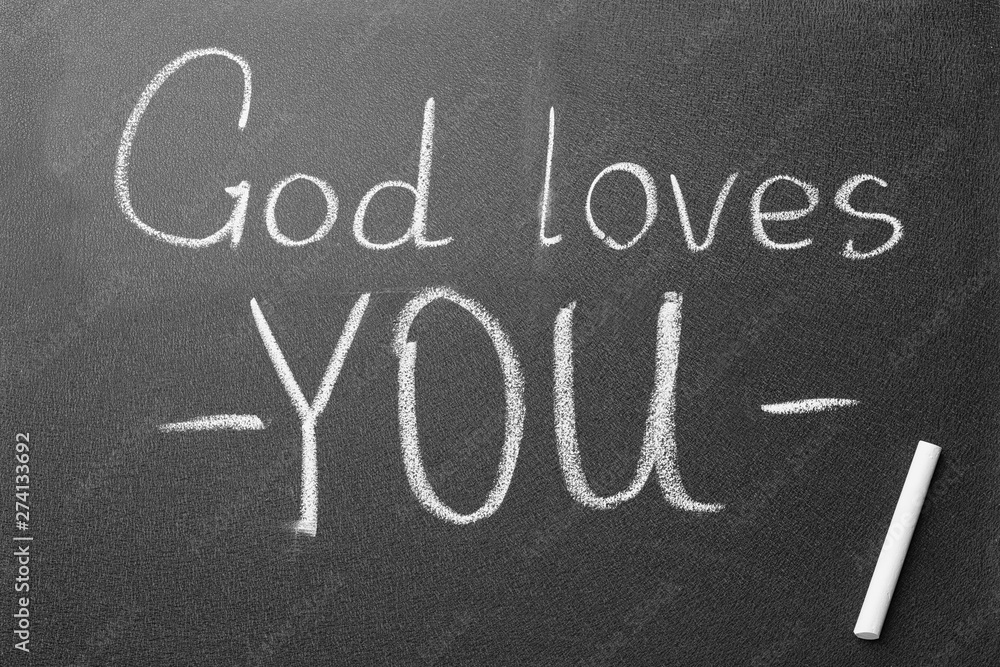 God loves
- YOU -
Adobe Stock | #274133692